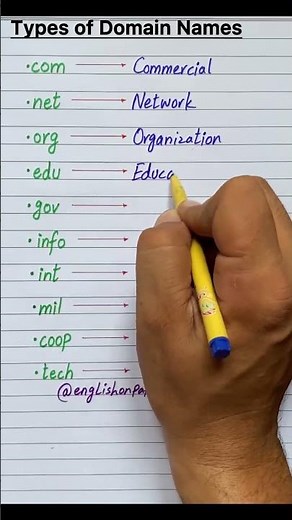 Types of Domain Names
.com → Commercial
.net → Network
.org → Organization
.edu → Educa
.gov →
.info →
.int →
.mil →
.coop →
.tech →
@englishonpa